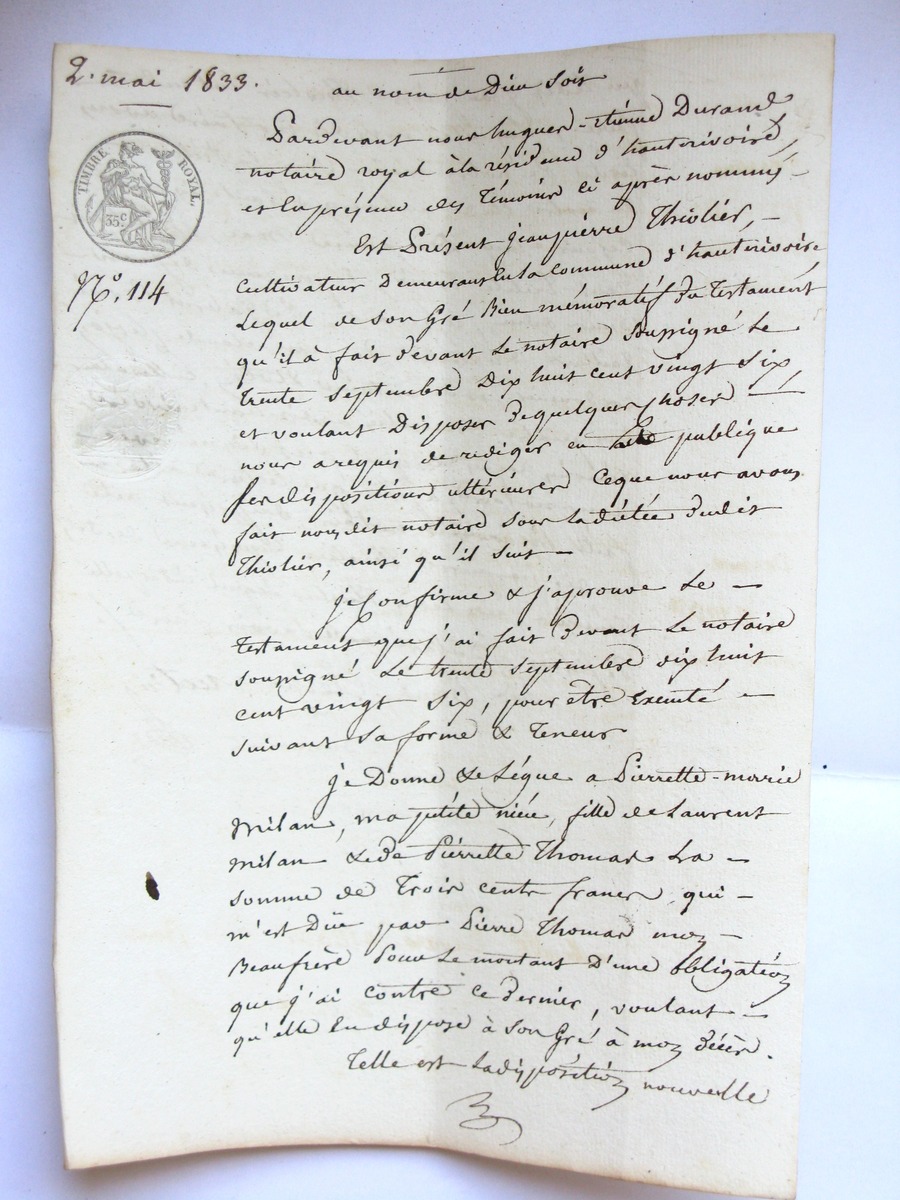 2. mai 1833.
au nom de Dieu soit
Pardevant nous hugues-étienne Durand
notaire royal à la résidence d'hauterivoire,
et en présence des Témoins ci après nommés -
TIMBRE ROYAL.
35 c
Est Présent jean pierre Thiolier, -
N.º 114
Cultivateur Demeurant en la commune d'hauterivoire
Lequel de son Gré Bien mémoratif du Testament
qu'il à fait devant le notaire soussigné le
trente septembre Dix huit cent vingt six,
et voulant Disposer de quelques choses -
nous a requis de rediger en acte publique
ses dispositions ultérieures Ce que nous avons
fait nousdit notaire sous la dictée dudit
Thiolier, ainsi qu'il suit -
je Confirme & j'aprouve le -
Testament que j'ai fait devant le notaire
soussigné Le trente septembre dix huit
cent vingt six, pour etre executé -
suivant sa forme & Teneur
je Donne & Légue a Pierrette-marie
Milan, ma petite niéce, fille de Laurent
milan & de Piérrette Thomas La -
somme de Trois cents francs, qui -
m'est Düe par Pierre Thomas mon -
Beaufrère Pour Le montant D'une obligation
que j'ai contre ce Dernier, voulant -
qu'elle En dispose à son Gré à mon décès.
Telle est La disposition nouvelle